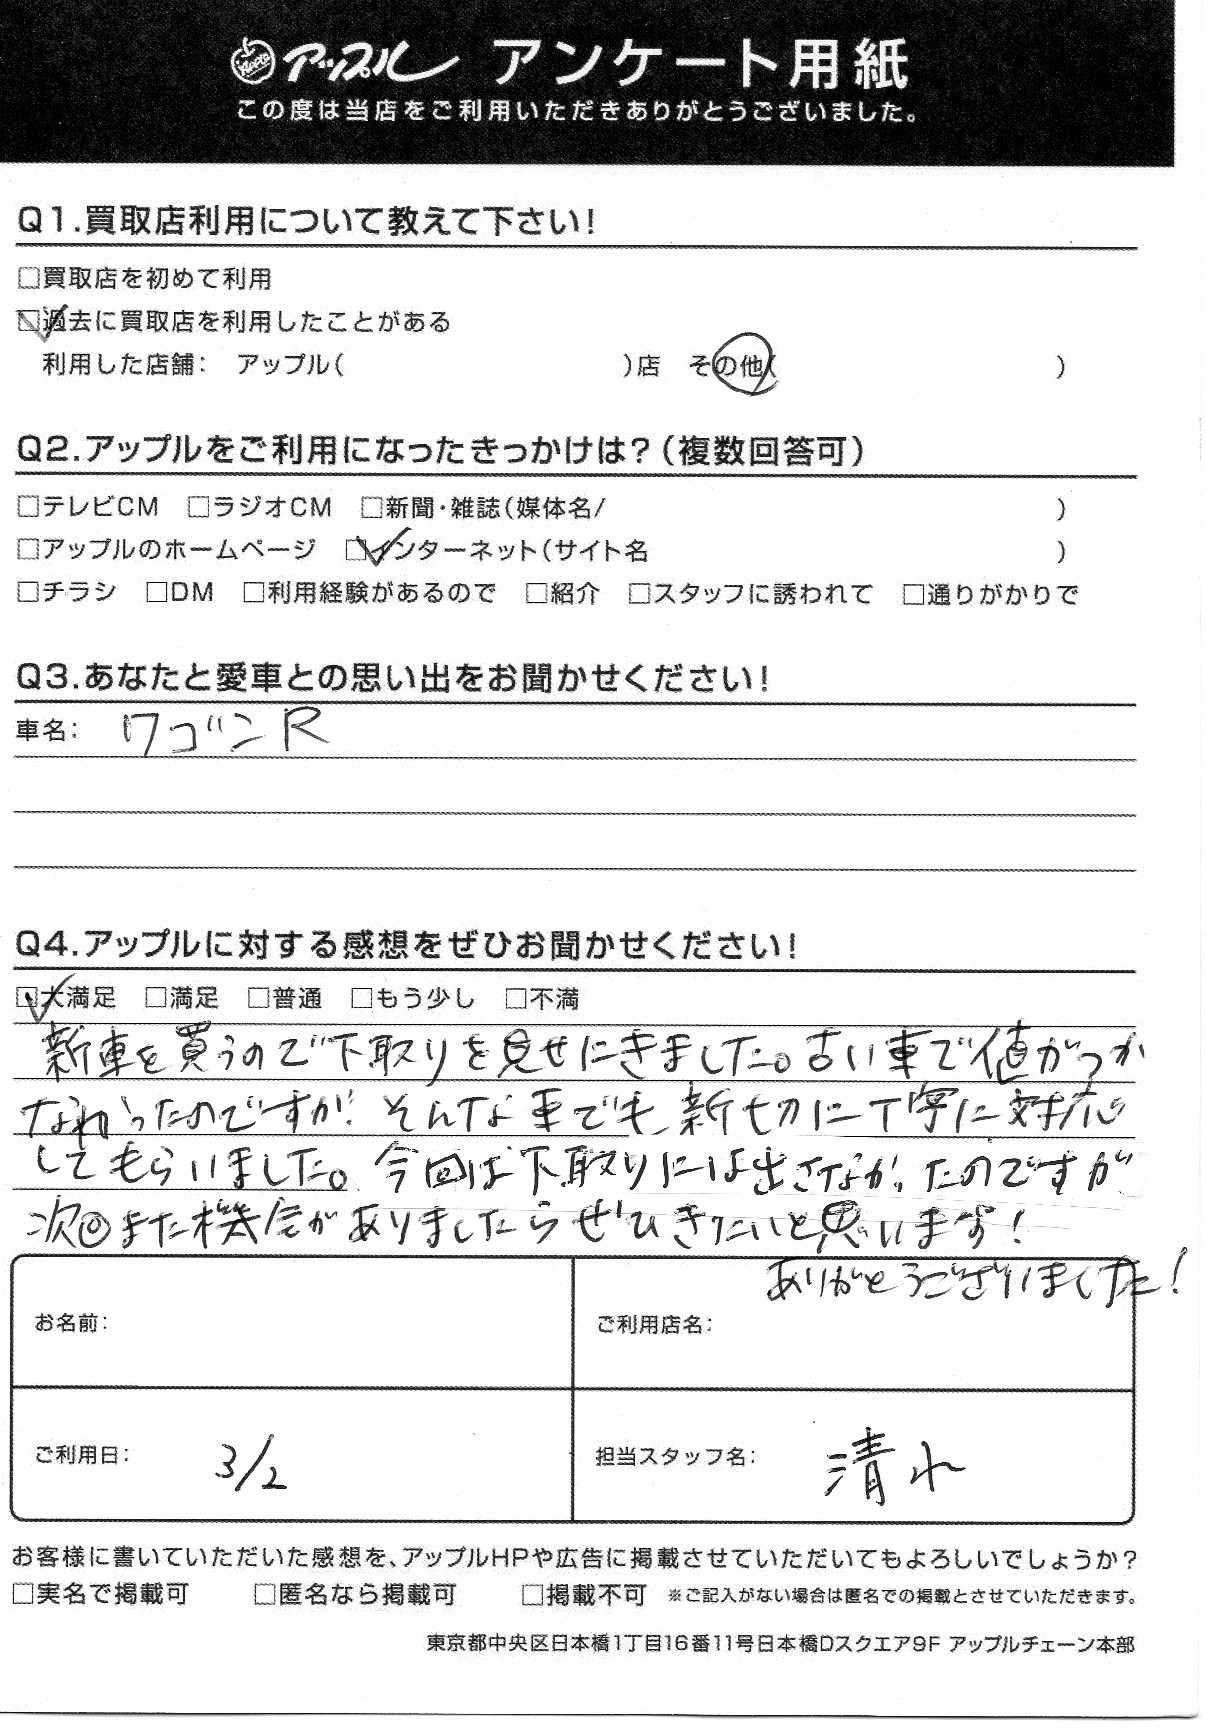 Apple アップル アンケート用紙
この度は当店をご利用いただきありがとうございました。
Q1.買取店利用について教えて下さい!
□買取店を初めて利用
☑過去に買取店を利用したことがある
利用した店舗: アップル( )店 その他( )
Q2.アップルをご利用になったきっかけは?(複数回答可)
□テレビCM □ラジオCM □新聞・雑誌(媒体名/ )
□アップルのホームページ ☑インターネット(サイト名 )
□チラシ □DM □利用経験があるので □紹介 □スタッフに誘われて □通りがかりで
Q3.あなたと愛車との思い出をお聞かせください!
車名: ワゴンR
Q4.アップルに対する感想をぜひお聞かせください!
☑大満足 □満足 □普通 □もう少し □不満
新車を買うので下取りを見せにきました。古い車で値がつか
なかったのですが、そんな車でも、新切に丁寧に対応
してもらいました。今回は下取りには出さなかったのですが
次回また機会がありましたらぜひきたいと思います!
ありがとうございました!
お名前: ご利用店名:
ご利用日: 3/2 担当スタッフ名: 清水
お客様に書いていただいた感想を、アップルHPや広告に掲載させていただいてもよろしいでしょうか?
□実名で掲載可 □匿名なら掲載可 □掲載不可 ※ご記入がない場合は匿名での掲載とさせていただきます。
東京都中央区日本橋1丁目16番11号日本橋Dスクエア9F アップルチェーン本部